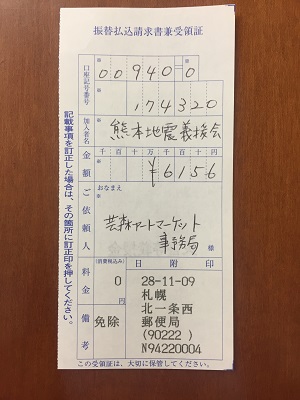 振替払込請求書兼受領証
口座記号番号
00940=0
174320
加入者名
熊本地震義援会
金額
千百十万千百十円
¥6156
ご依頼人
おなまえ
芸森アートマーケット
事務局
様
料金
(消費税込み)
0
円
日附印
28-11-09
札幌
北一条西
郵便局
(90222)
N94220004
備考
免除
記載事項を訂正した場合は、その箇所に訂正印を押してください。
この受領証は、大切に保管してください。